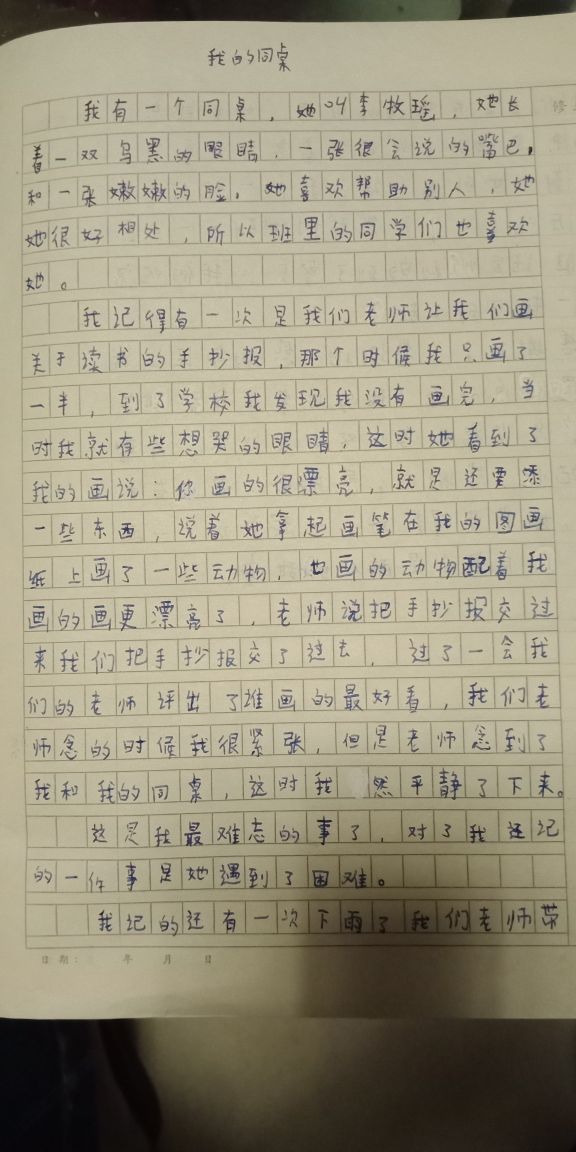 我的同桌
我有一个同桌，她叫李牧瑶，她长
着一双乌黑的眼睛，一张很会说的嘴巴，
和一张嫩嫩的脸，她喜欢帮助别人，她
她很好相处，所以班里的同学们也喜欢
她。
我记得有一次是我们老师让我们画
关于读书的手抄报，那个时候我只画了
一半，到了学校我发现我没有画完，当
时我就有些想哭的眼睛，这时她看到了
我的画说：你画的很漂亮，就是还要添
一些东西，说着她拿起画笔在我的图画
纸上画了一些动物，也画的动物配着我
画的画更漂亮了，老师说把手抄报交过
来我们把手抄报交了过去，过了一会我
们的老师评出了谁画的最好看，我们老
师念的时候我很紧张，但是老师念到了
我和我的同桌，这时我 然平静了下来。
这是我最难忘的事了，对了我还记
的一件事是她遇到了困难。
我记的还有一次下雨了我们老师带
日期： 年 月 日